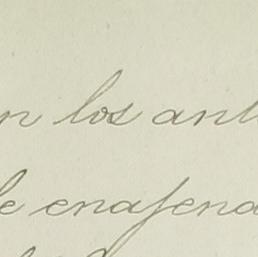 n los ant
le enajena